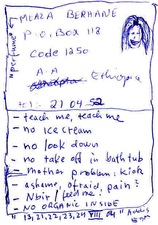 "perfume"
MEAZA BERHANE
P.O. BOX 118
Code 1250
A.A
Ethiopia
tel: 21 04 52
- teach me, teach me
- no ice cream
- no look down
- no take off in bath tub
- mother problem: kick
- ashame, afraid, pain?
- Nbir / feed me!
- NO ORGANIC INSIDE
"13, 21, 22, 23, 24 VIII